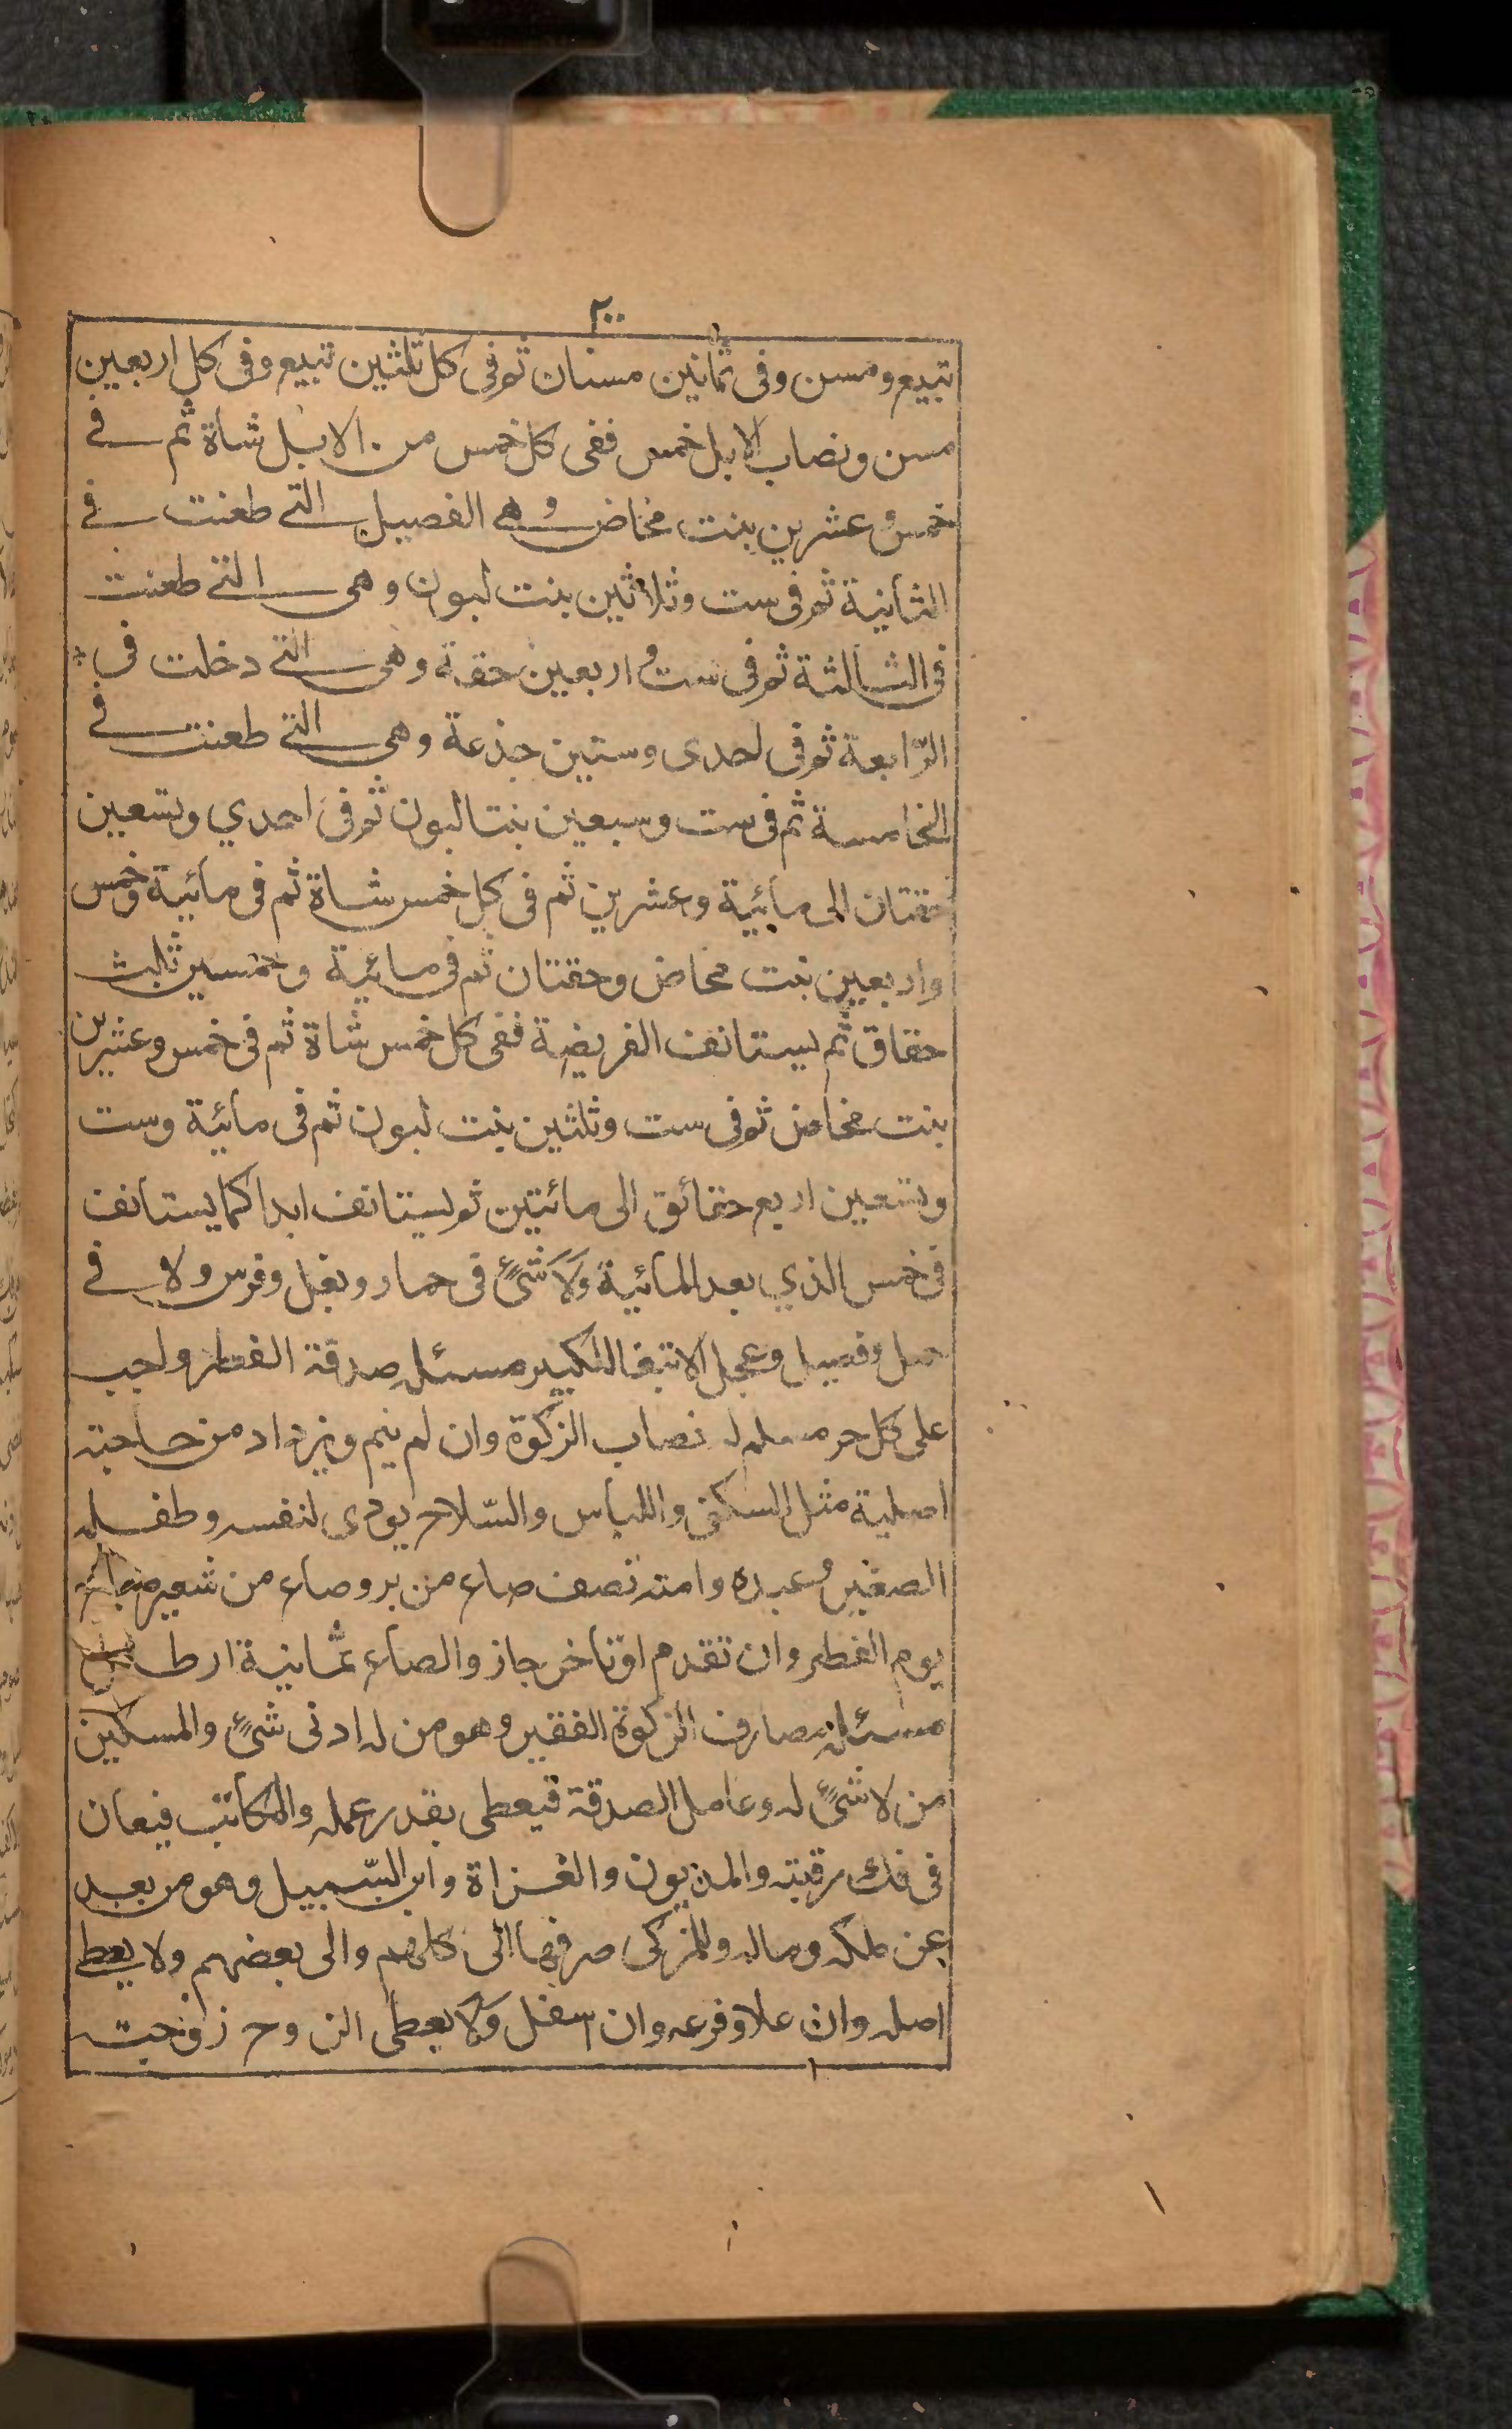 ٢٠٠
تبيع ومسن وفى ثمانين مسنان ثم فى كل ثلثين تبيع وفى كل اربعين
مسن ونصاب الابل خمس ففى كل خمس من الابل شاة ثم فى
خمس وعشرين بنت مخاض وهى الفصيل التى طعنت فى
الثانية ثم فى ست وثلاثين بنت لبون وهى التى طعنت
فى الثالثة ثم فى ست و اربعين حقة وهى التى دخلت فى
الرّابعة ثم فى احدى وستين جذعة وهى التى طعنت فى
الخامسة ثم فى ست وسبعين بنتا لبون ثم فى احدي وتسعين
حقتان الى مائية وعشرين ثم فى كل خمس شاة ثم فى مائية وخمس
واربعين بنت مخاض وحقتان ثم فى مائية وخمسين ثلث
حقاق ثم يستانف الفريضة ففى كل خمس شاة ثم فى خمس وعشرين
بنت مخاض ثم فى ست وثلثين بنت لبون ثم فى مائية وست
وتسعين اربع حقائق الى مائتين ثم يستانف ابدا كما يستانف
فى خمس الذي بعد المائية ولا شئ فى حمار وبغل وفرس ولا فى
حمل وفصيل وعجل الا تبعا للكبير مسئله صدقة الفطر واجب
على كل حر مسلم له نصاب الزكوة وان لم ينم ويزداد من حاجته
اصلية مثل السكنى واللباس والسّلاح يودى لنفسه وطفله
الصغير وعبده وامته نصف صاع من بر وصاع من شعير
يوم الفطر وان تقدم او تاخر جاز والصاع ثمانية ارطال
مسئله مصارف الزكوة الفقير وهو من له ادنى شئ والمسكين
من لا شئ له وعامل الصدقة فيعطى بقدر عمله والمكاتب فيعان
فى فك رقبته والمديون والغزاة وابن السّبيل وهو من بعد
عن ملكه وماله وللمزكى صرفها الى كلهم والى بعضهم ولا يعطى
اصله وان علا وفرعه وان اسفل ولا يعطى الزوج زوجته